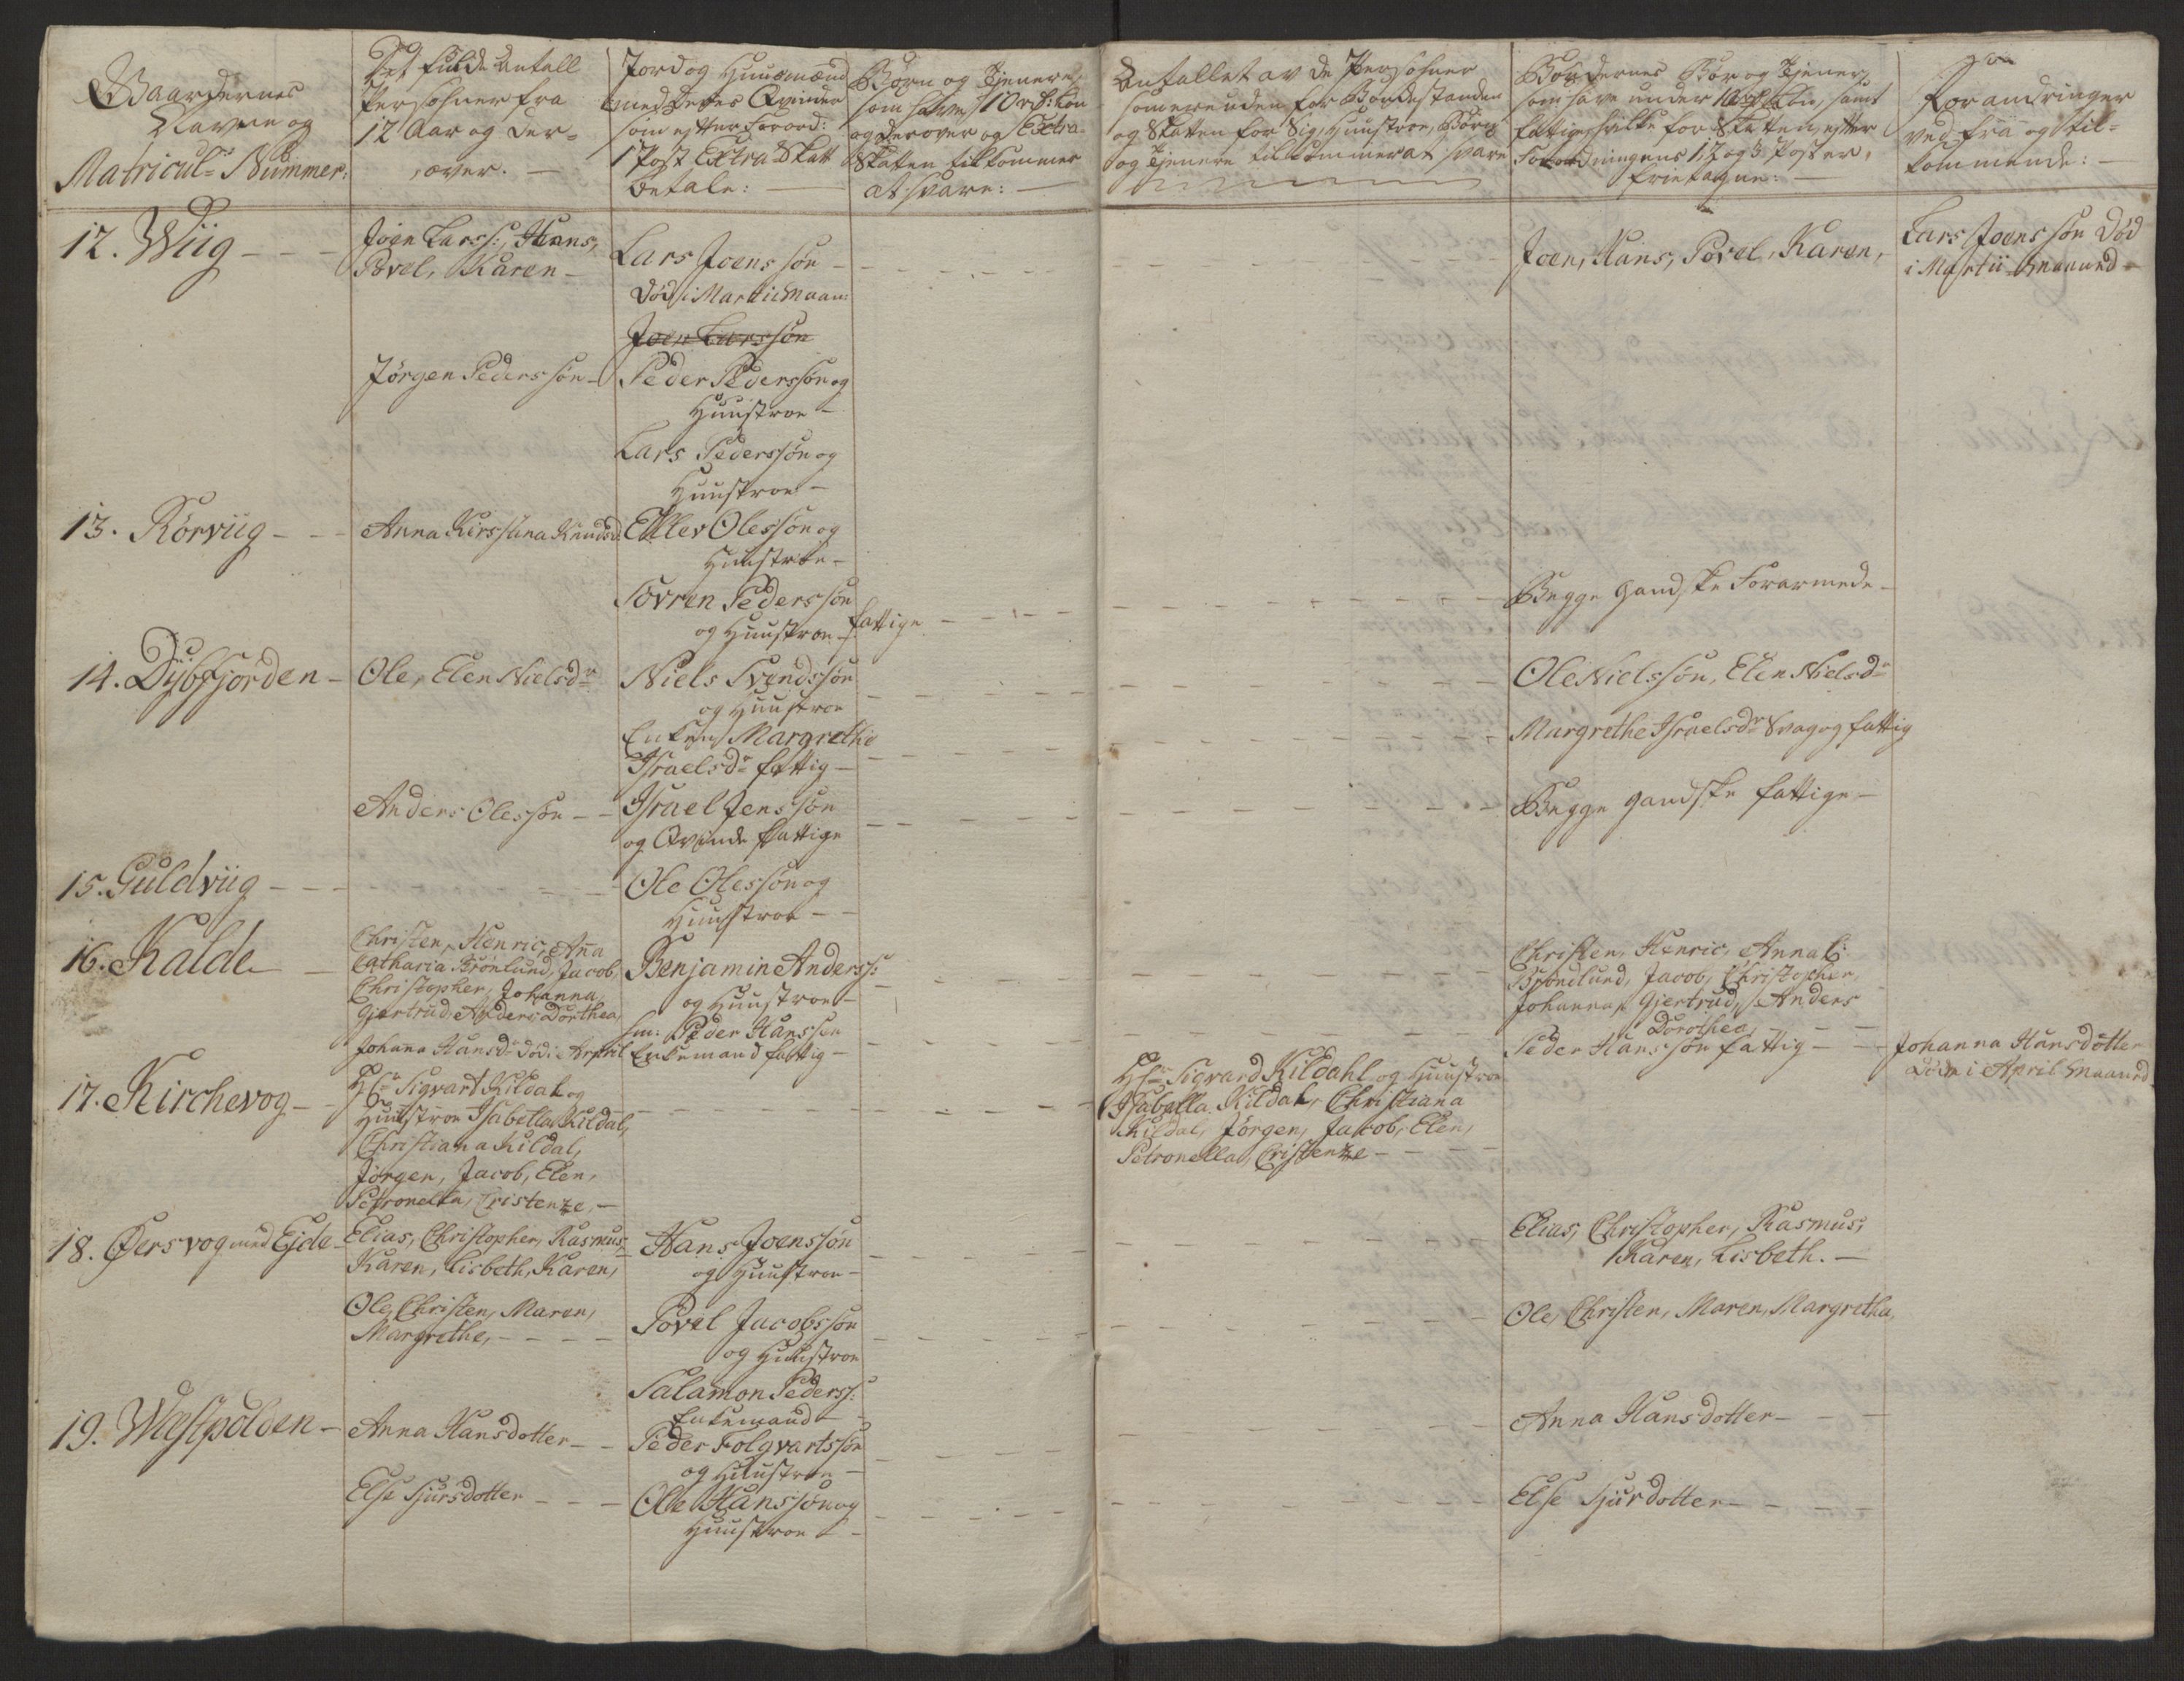 Gaardernes
Navne og
Matricul- Nummer:
Det fulde Antall
Persohner fra
12 Aar og der-
over. —
Jord og Huusmænd
med deres Qvinder
som efter Forord:
1 Post Extra Skatt
betale: —
Børn og Tjenere,
som have 10 rd: Løn
og derover og Extra-
Skatten tilkommer
at svare: —
Antallet av de Persohner
som ere uden for Bondestanden
og Skatten for Sig, Huustroe, Børn
og Tjenere tilkommer at svare
Bøndernes Børn og Tjenere
som have under 10 rd Løn, samt
fattige, hvilke for Skatten efter
Forordningens 1, 2 og 3 Poster,
frietagne: —
Forandringer
ved fra og til-
kommende: —
12. Wiig - - -
Joen Larss:, Hanns,
Povel, Karen -
Lars Joenssøn -
død i Martii Maan:
Joen Larssøn
Joen, Hans, Povel, Karen,
Lars Joenssøn død
i Martii Maaned -
Jørgen Pederssøn -
Peder Pederssøn og
Huustroe -
Lars Pederssøn og
Huustroe -
13. Rörviig - - -
Anna Kirstina Knudsd:
Ellev Olessøn og
Huustroe -
Søvren Pederssøn
og Huustroe - fattige
Begge gandske Forarmede -
14. Dybfjorden -
Ole, Elen Nielsdr
Niels Svendssøn
og Huustroe
Ole Nielssøn, Elen Nielsdr
Enken Margrethe
Israelsdr fattig -
Margrethe Israelsdr Svag og fattig
Anders Olessøn - -
Israel Jenssøn
og Qvinde fattige
Begge gandske fattige -
15. Guldviig - - -
Ole Olessøn og
Huustroe - -
16. Kalde -
Christen, Henric, Anna
Catharia Brønlund, Jacob,
Christopher, Johanna,
Gjertrud, Anders Dorthea,
Johana Hansdr død i April
Benjamin Anderss:
og Huustroe -
hm: Peder Hanssøn
Enkemand fattig -
Christen, Henric, Anna C:
Brøndlund, Jacob, Christopher,
Johanna, Gjertrud, Anders
Dorothea, - - -
Peder Hanssøn fattig - -
Johanna Hansdotter
døde i April Maaned
17. Kirchevog - -
Hr Sigvart Kildal og
Huustroe Isabella Kildal,
Christiana Kildal,
Jørgen, Jacob, Elen,
Petronella, Cristenze, -
Hr Sigvard Kildahl og Huustroe
Isabella Kildal, Christiana
Kildal, Jørgen, Jacob, Elen,
Petronella, Cristenze - - - -
18. Øersvog med Ejde -
Elias, Christopher, Rasmus,
Karen, Lisbeth, Karen,
Hans Joenssøn
og Huustroe -
Elias, Christopher, Rasmus,
Karen, Lisbeth. -
Ole, Christen, Maren,
Margrethe, - - - -
Povel Jacobssøn
og Huustroe
Ole, Christen, Maren, Margretha,
Salamon Pederss:
Enkemand -
19. Wæstpolden -
Anna Hansdotter - -
Peder Folqvartssøn
og Huustroe -
Anna Hansdotter - - -
Else Sjursdotter - - -
Ole Hanssøn og
Huustroe -
Else Sjurdotter - - - -